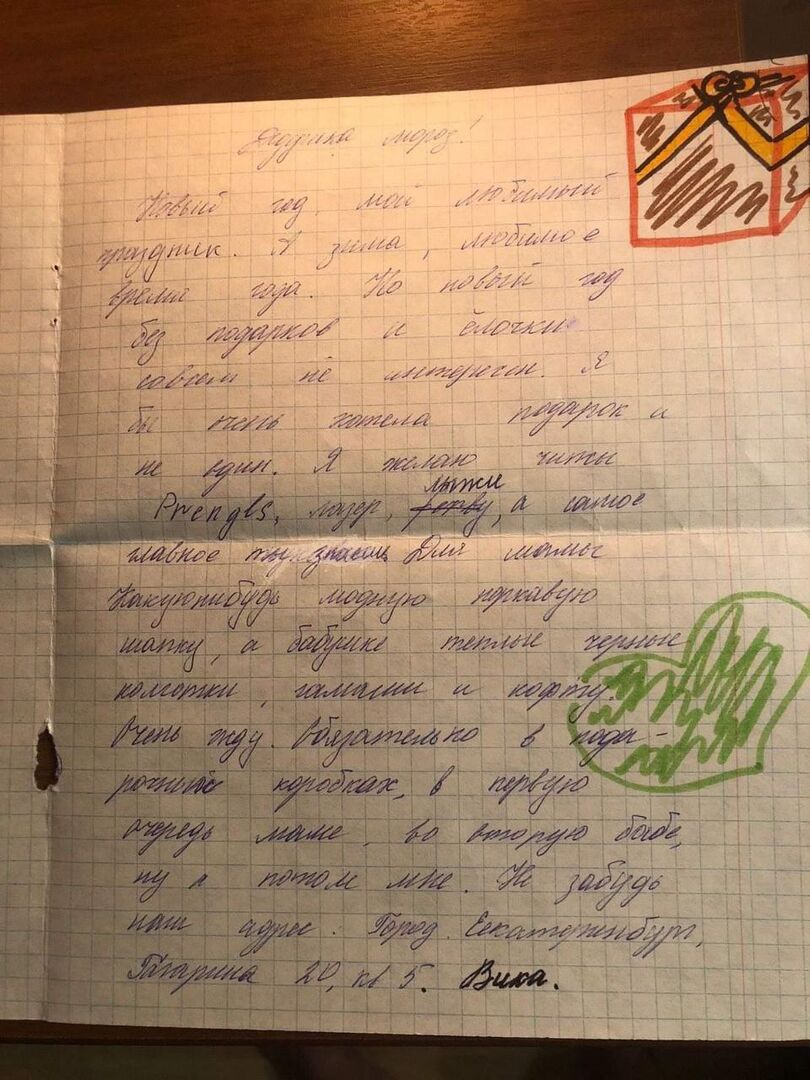 Дедушка мороз!
Новый год, мой любимый
праздник. А зима, любимое
время года. Но новый год
без подарков и ёлочки
совсем не интересен. Я
бы очень хотела подарок и
не один. Я желаю чипсы
лыжи
Prengls, лазер, а самое
главное Для мамы
Какуюнибудь модную норкавую
шапку, а бабушке теплые черные
колготки, гамаши и кофту.
Очень жду. Обязательно в пода-
рочных коробках, в первую
очередь маме, во вторую бабе,
ну а потом мне. Не забудь
наш адрес. Город. Екатеринбург,
Гагарина 20, кв 5. Вика.